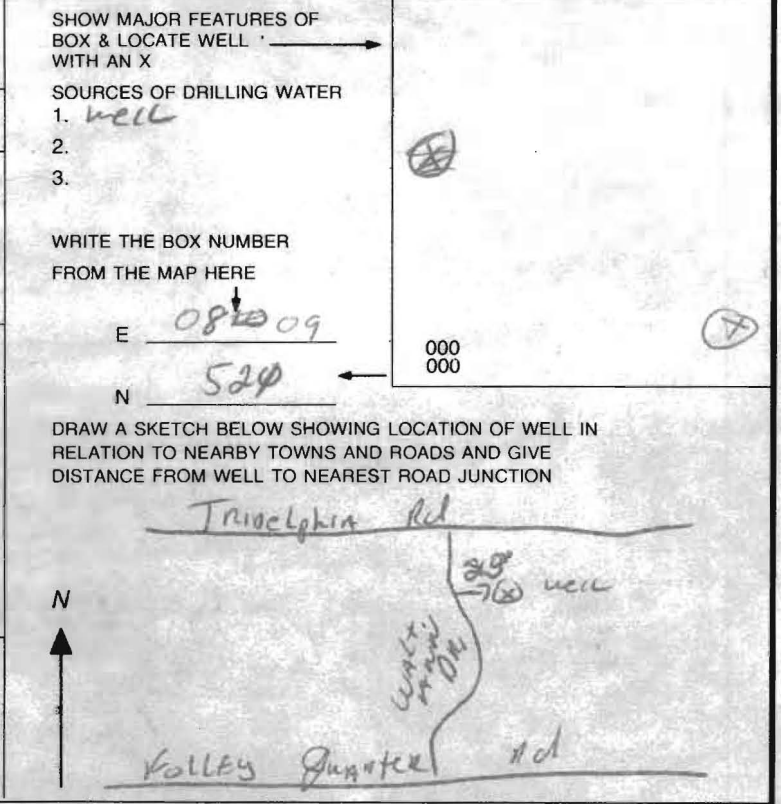 SHOW MAJOR FEATURES OF
BOX & LOCATE WELL
WITH AN X
SOURCES OF DRILLING WATER
1. well
2.
3.
WRITE THE BOX NUMBER
FROM THE MAP HERE
E 08 09
N 520
000
000
DRAW A SKETCH BELOW SHOWING LOCATION OF WELL IN
RELATION TO NEARBY TOWNS AND ROADS AND GIVE
DISTANCE FROM WELL TO NEAREST ROAD JUNCTION
Tridelphia Rd
X well
N
WALT
ANN
DR.
FOLLEY QUARTER Rd